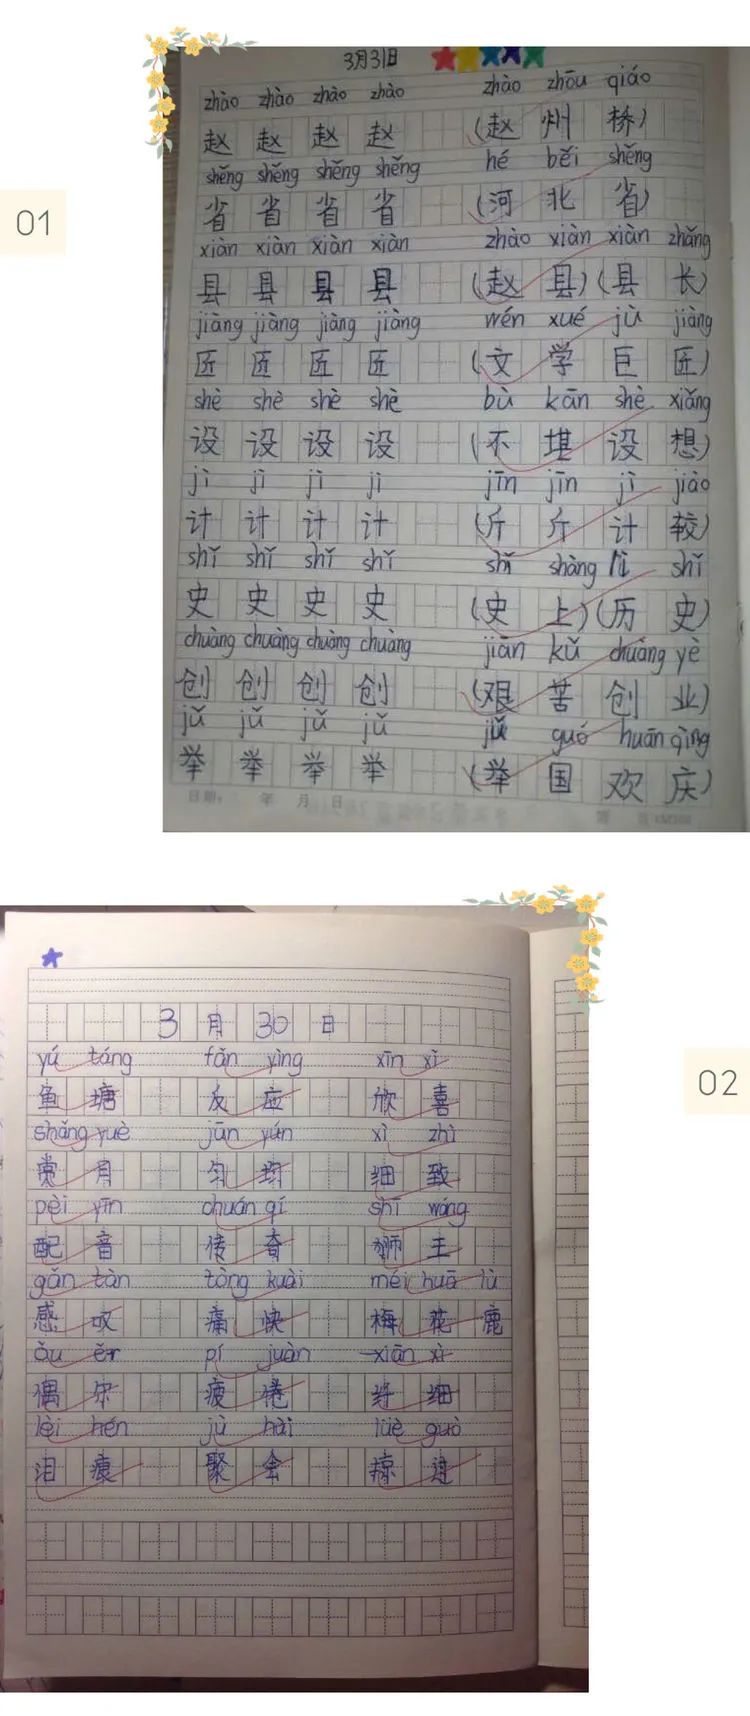 3月31日
zhào zhào zhào zhào zhào zhōu qiáo
赵 赵 赵 赵 (赵 州 桥)
shěng shěng shěng shěng hé běi shěng
01
省 省 省 省 (河 北 省)
xiàn xiàn xiàn xiàn zhào xiàn xiàn zhǎng
县 县 县 县 (赵 县)(县 长)
jiàng jiàng jiàng jiàng wén xué jù jiàng
匠 匠 匠 匠 (文 学 巨 匠)
shè shè shè shè bù kān shè xiǎng
设 设 设 设 (不 堪 设 想)
jì jì jì jì jīn jīn jì jiào
计 计 计 计 (斤 斤 计 较)
shǐ shǐ shǐ shǐ shǐ shàng lì shǐ
史 史 史 史 (史 上)(历 史)
chuàng chuàng chuàng chuàng jiān kǔ chuàng yè
创 创 创 创 (艰 苦 创 业)
jǔ jǔ jǔ jǔ jǔ guó huān qìng
举 举 举 举 (举 国 欢 庆)
日期: 年 月 日
3 月 30 日
yú táng fǎn yìng xīn xǐ
02
鱼 塘 反 应 欣 喜
shǎng yuè jūn yún xì zhì
赏 月 匀 均 细 致
pèi yīn chuán qí shī wáng
配 音 传 奇 狮 王
gǎn tàn tòng kuài méi huā lù
感 叹 痛 快 梅 花 鹿
ǒu ěr pí juàn xiān xì
偶 尔 疲 倦 纤 细
lèi hén jù huì lüè guò
泪 痕 聚 会 掠 过